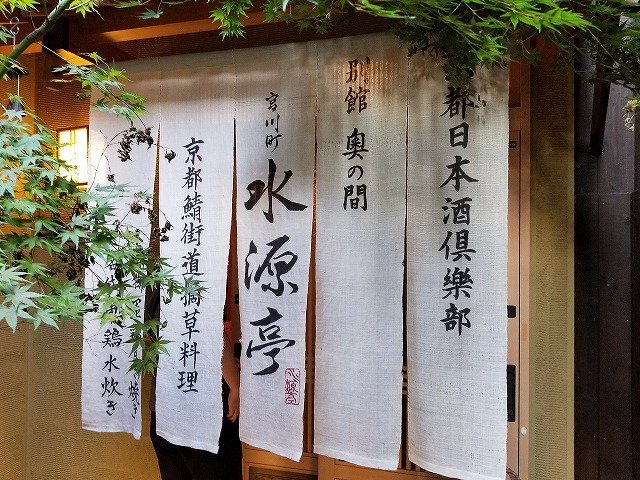 都日本酒倶樂部
別館 奥の間
宮川町 水源亭
京都鯖街道摘草料理
焼き
鶏水炊き